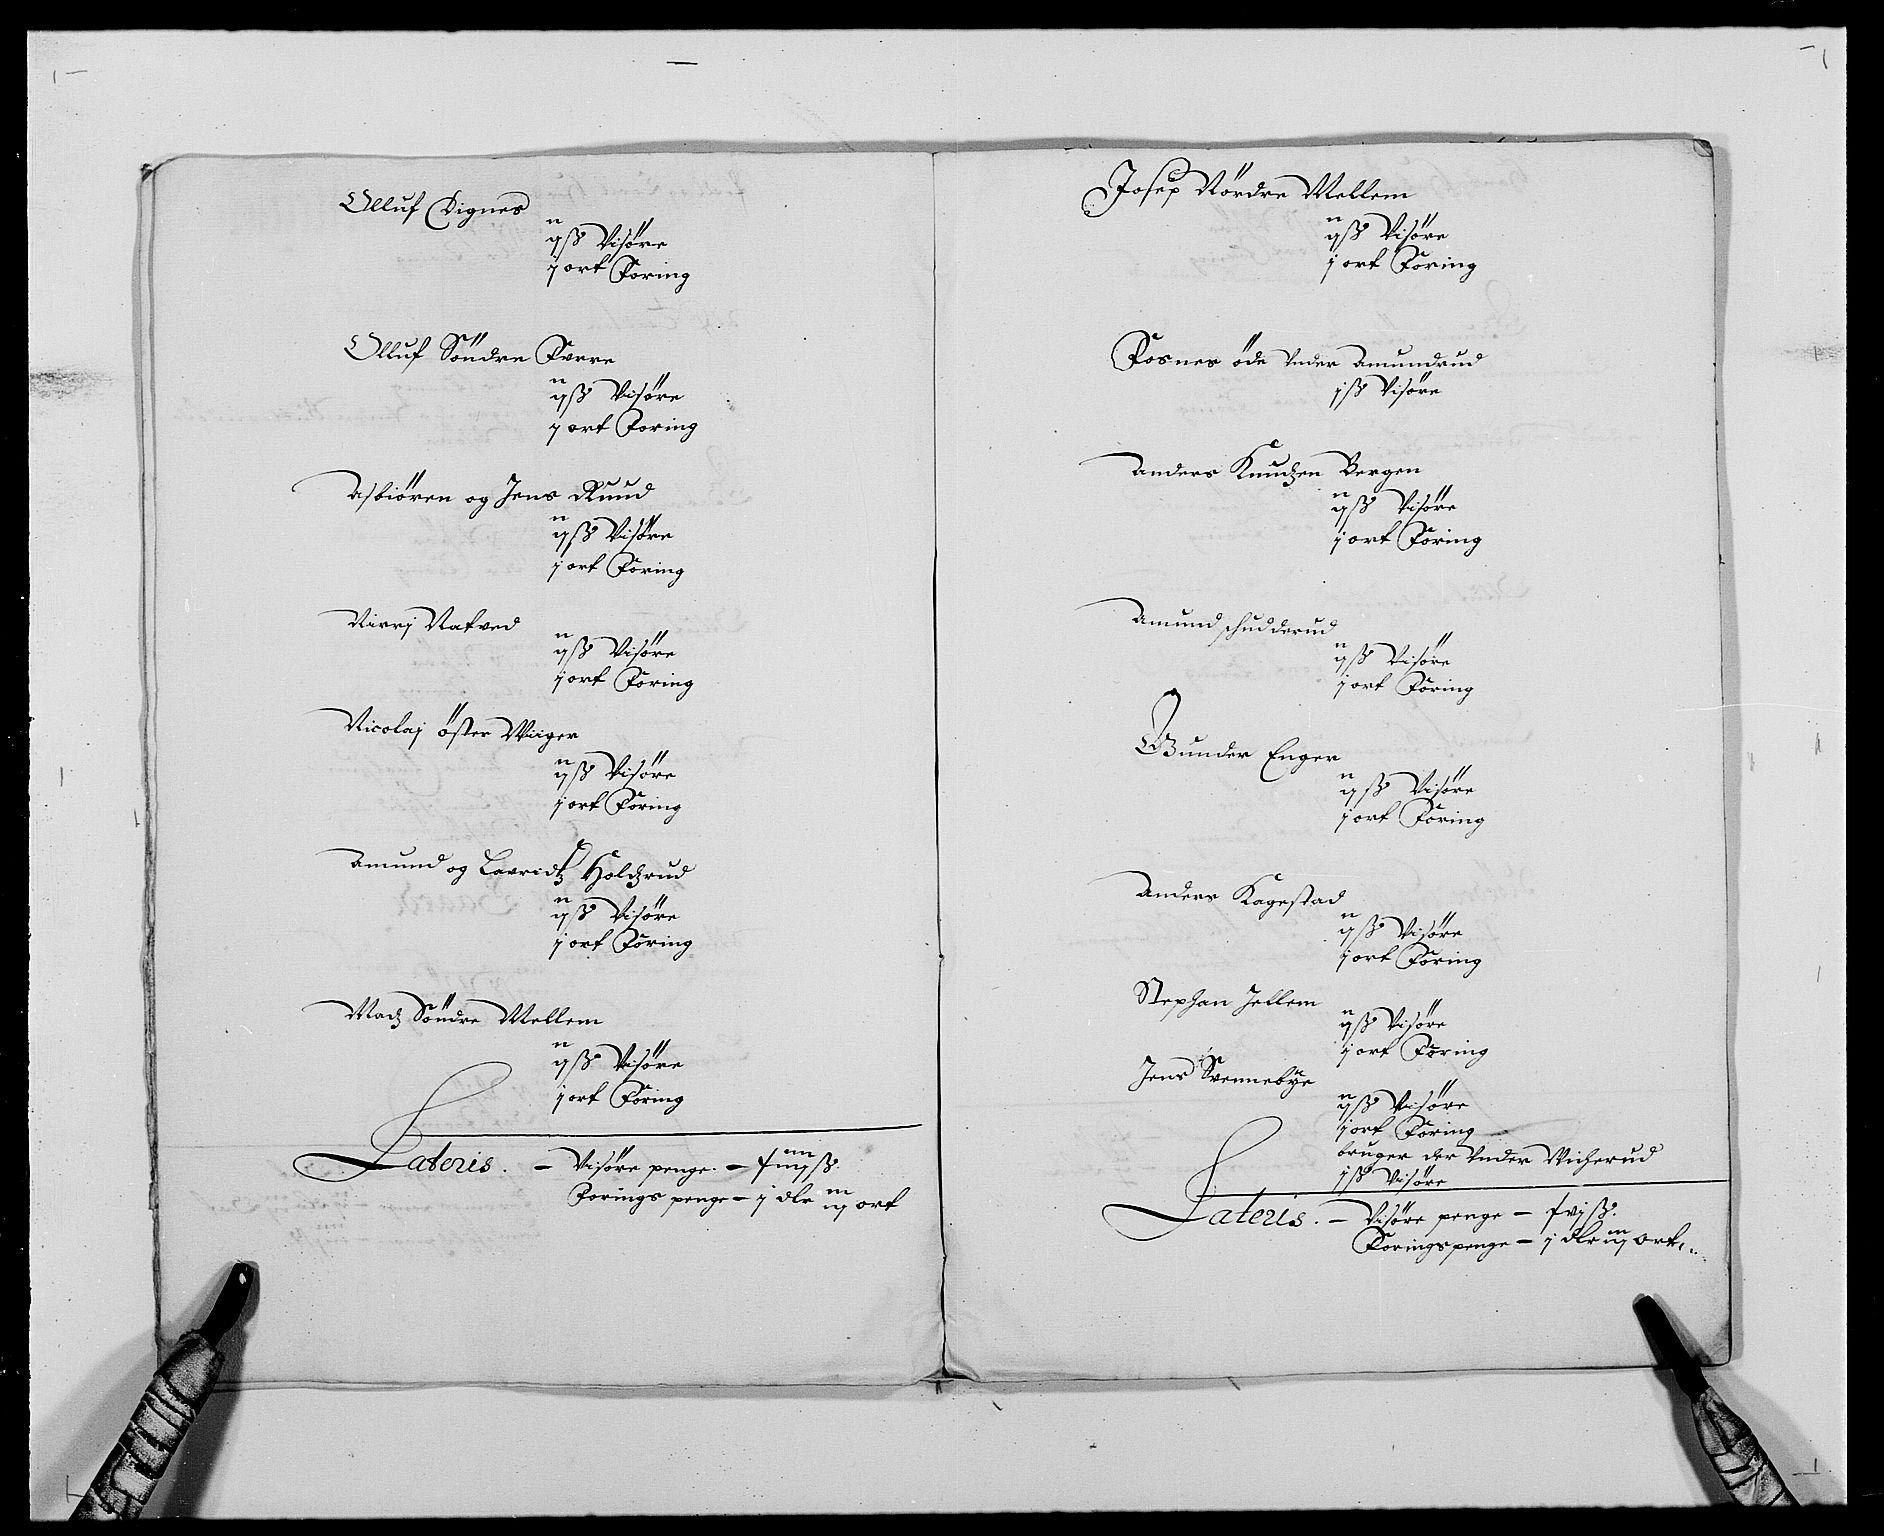 Olluf Dignes
ij ß Visøre
j ort Foring
Olluf Søndre Kerre
ij ß Visøre
j ort Foring
Asbiøren og Jens Ruud
ij ß Visøre
j ort Foring
Nirrj Nakved
ij ß Visøre
j ort Foring
Nicolaj øster Wiiger
ij ß Visøre
j ort Foring
Amund og Lauridtz Holtzrud
ij ß Visøre
j ort Foring
Madz Søndre Mellem
ij ß Visøre
j ort Foring
Lateris. – Visøre penge. – xiiij ß.
Forings penge – j dlr iij ort
Josep Nørdre Mellem
ij ß Visøre
j ort Foring
Fosnes øde Vnder Amundrud
j ß Visøre
Anders Knudzen Bergen
ij ß Visøre
j ort Foring
Amund schudderud
ij ß Visøre
j ort Foring
Gunder Enger
ij ß Visøre
j ort Foring
Anders Kagestad
ij ß Visøre
j ort Foring
Stephan Jellem
ij ß Visøre
j ort Foring
Jens Svennebye
ij ß Visøre
j ort Foring
bruger der Vnder Wicherud
j ß Visøre
Lateris. – Visøre penge – xvj ß.
Foringspenge – j dlr iij ort